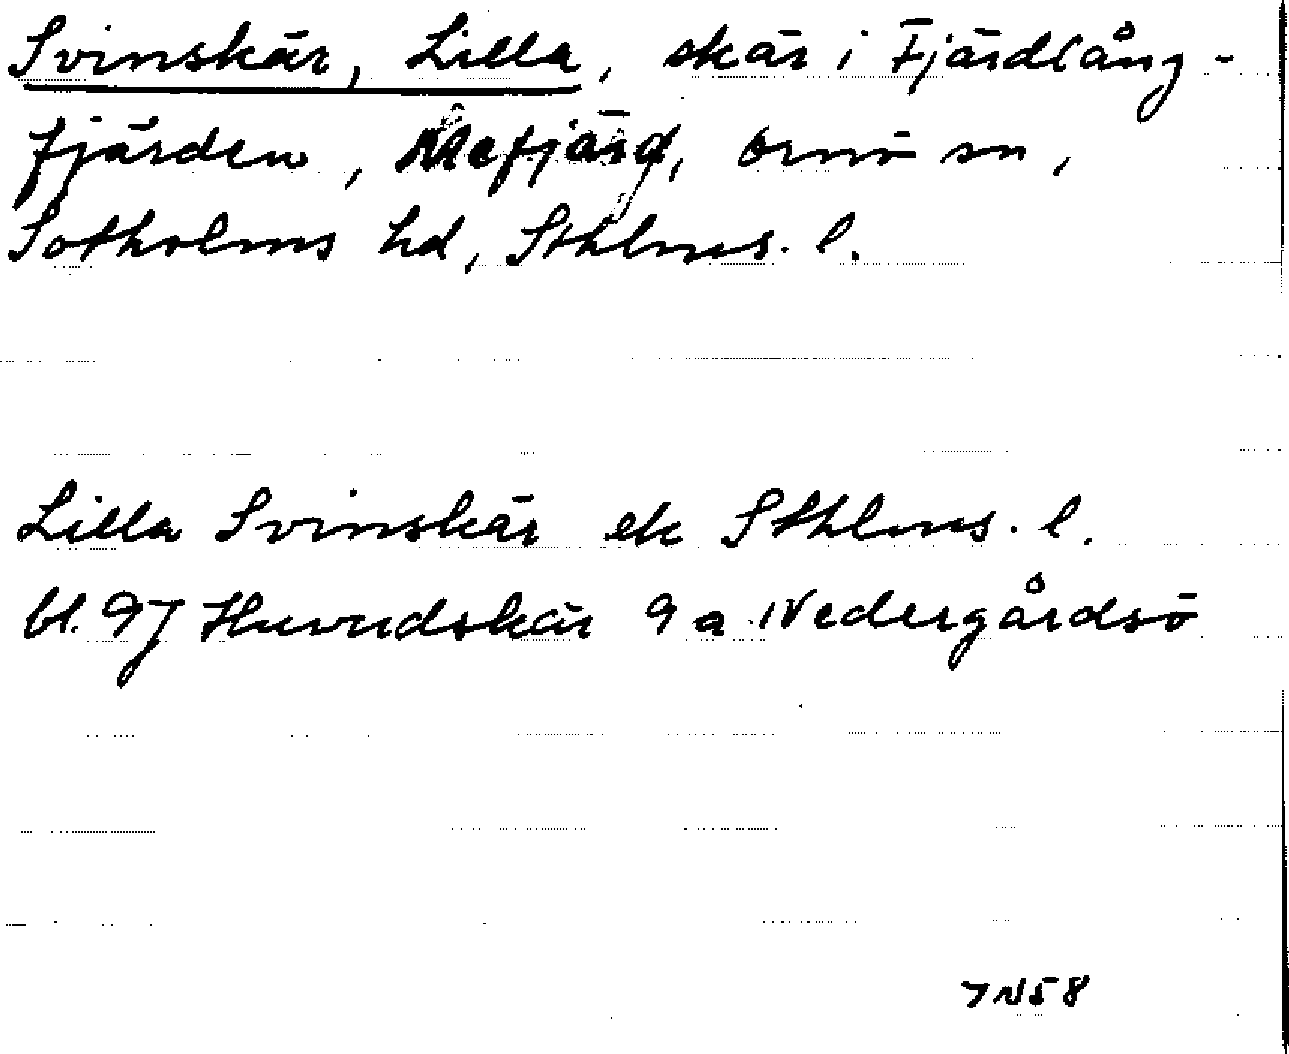 Svinskär, Lilla, skär i Fjärdlång-
fjärden, Ålefjärd, Ornö sn,
Sotholms hd, Sthlms. l.
Lilla Svinskär ek Sthlms. l.
bl. 97 Huvudskär 9 a Nedergårdsö
7 N 58